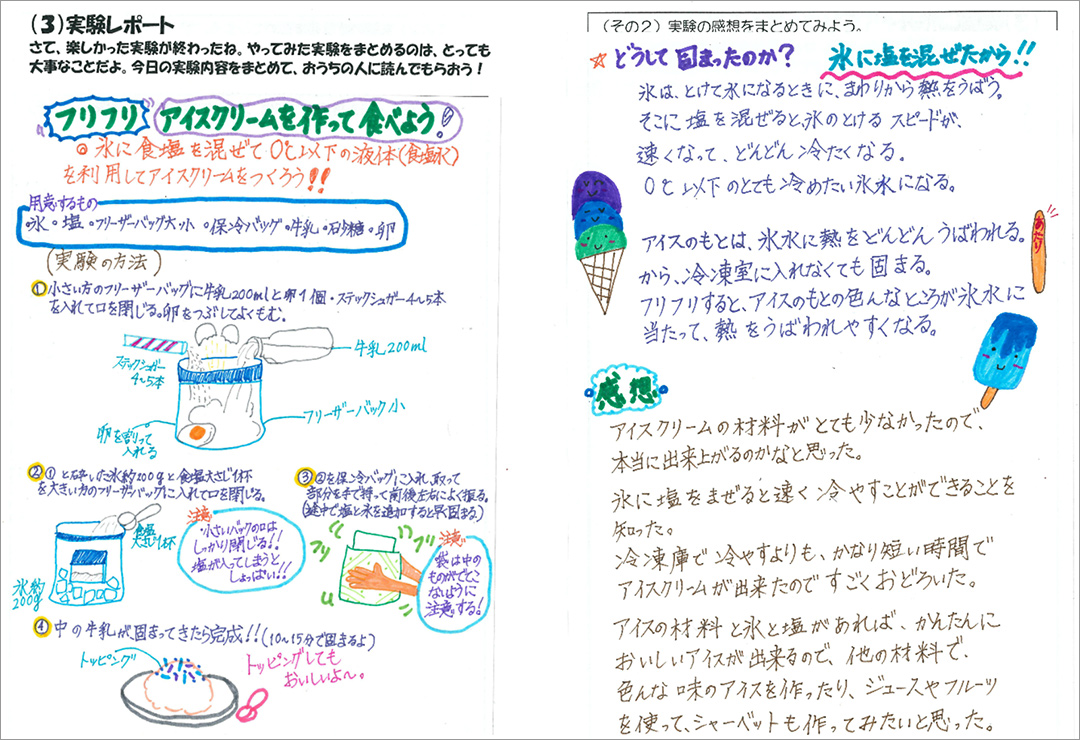 (3)実験レポート
さて、楽しかった実験が終わったね。やってみた実験をまとめるのは、とっても
大事なことだよ。今日の実験内容をまとめて、おうちの人に読んでもらおう！
フリフリ アイスクリームを作って食べよう！
◎氷に食塩を混ぜて0℃以下の液体(食塩水)
を利用してアイスクリームをつくろう!!
用意するもの
・氷・塩・フリーザーバッグ大小・保冷バッグ・牛乳・砂糖・卵
(実験の方法)
①小さい方のフリーザーバッグに牛乳200mlと卵1個・スティックシュガー4~5本
を入れて口を閉じる。卵をつぶしてよくもむ。
スティックシュガー
4~5本
牛乳200ml
フリーザーバック小
卵を割って
入れる
②①と砕いた氷約200gと食塩大さじ1杯
を大きい方のフリーザーバックに入れて口を閉じる。
食塩
大さじ1杯
氷約
200g
注意
小さいバックの口は
しっかり閉じる!!
塩が入ってしまうと
しょっぱい!!
③②を保冷バッグに入れ、取って
部分を手で持って前後左右によく振る。
(途中で塩と氷を追加すると早く固まる)
フリ
フリ
注意
袋は中の
ものがでてこ
ないように
注意する！
④中の牛乳が固まってきたら完成!!(10~15分で固まるよ)
トッピング
トッピングしても
おいしいよ~。
(その2) 実験の感想をまとめてみよう。
☆どうして固まったのか？ 氷に塩を混ぜたから!!
氷は、とけて水になるときに、まわりから熱をうばう。
そこに塩を混ぜると、氷のとけるスピードが、
速くなって、どんどん冷たくなる。
0℃以下のとても冷めたい氷水になる。
アイスのもとは、氷水に熱をどんどんうばわれる。
から、冷凍室に入れなくても固まる。
フリフリすると、アイスのもとの色んなところが氷水に
当たって、熱をうばわれやすくなる。
あたり
感想
アイスクリームの材料がとても少なかったので、
本当に出来上がるのかなと思った。
氷に塩をまぜると速く冷やすことができることを
知った。
冷凍庫で冷やすよりも、かなり短い時間で
アイスクリームが出来たのですごくおどろいた。
アイスの材料と氷と塩があれば、かんたんに
おいしいアイスが出来るので、他の材料で、
色んな味のアイスを作ったり、ジュースやフルーツ
を使って、シャーベットも作ってみたいと思った。